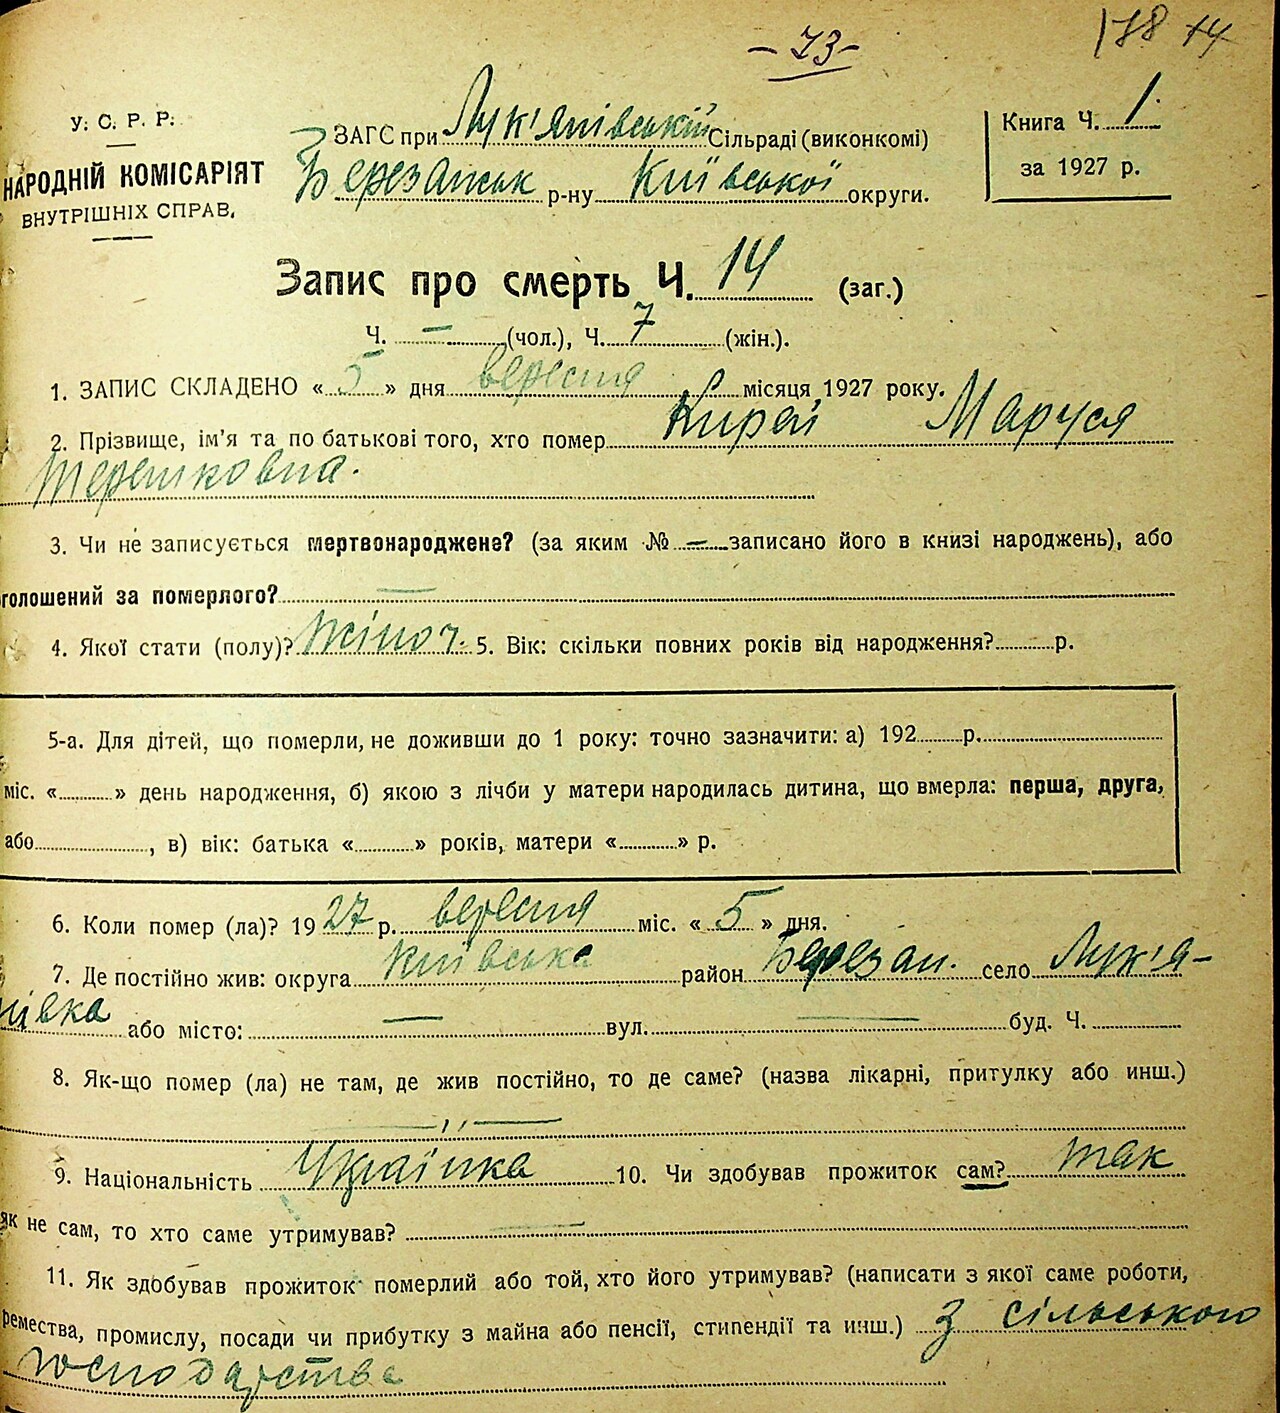 - 73 -
178 14
У. С. Р. Р.
НАРОДНІЙ КОМІСАРІЯТ
ВНУТРІШНІХ СПРАВ.
ЗАГС при Лук'янівській Сільраді (виконкомі)
Березанськ р-ну Київської округи.
Книга Ч. 1.
за 1927 р.
Запис про смерть Ч. 14 (заг.)
Ч. — (чол.), Ч. 7 (жін.).
1. ЗАПИС СКЛАДЕНО « 5 » дня вересня місяця 1927 року.
2. Прізвище, ім'я та по батькові того, хто помер Кирей Маруся
Терешковна.
3. Чи не записується мертвонароджене? (за яким № — записано його в книзі народжень), або
голошений за померлого? —
4. Якої стати (полу)? Жіноч. 5. Вік: скільки повних років від народження? р.
5-а. Для дітей, що померли, не доживши до 1 року: точно зазначити: а) 192 р.
міс. « » день народження, б) якою з лічби у матери народилась дитина, що вмерла: перша, друга,
або , в) вік: батька « » років, матери « » р.
6. Коли помер (ла)? 1927 р. вересня міс. « 5 » дня.
7. Де постійно жив: округа Київська район Березан. село Лук'я-
нівка або місто: — вул. — буд. Ч.
8. Як-що помер (ла) не там, де жив постійно, то де саме? (назва лікарні, притулку або инш.)
— " —
9. Національність Українка 10. Чи здобував прожиток сам? так
як не сам, то хто саме утримував? —
11. Як здобував прожиток померлий або той, хто його утримував? (написати з якої саме роботи,
ремества, промислу, посади чи прибутку з майна або пенсії, стипендії та инш.) З сільського
господарства